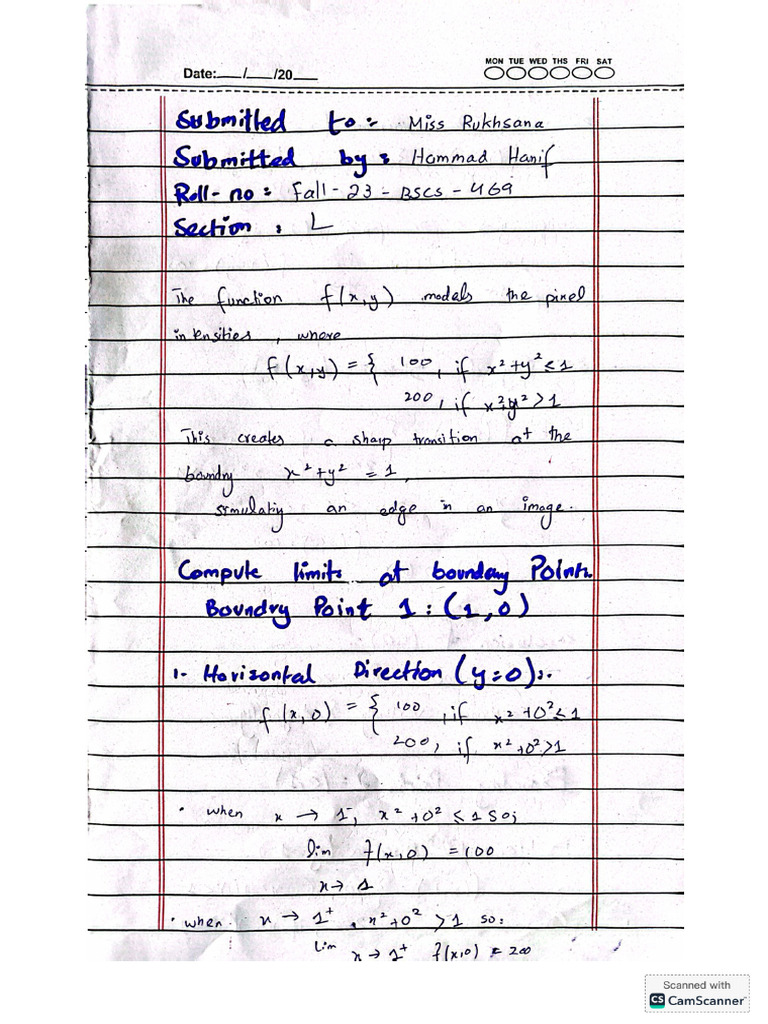 MON TUE WED THS FRI SAT
Date:___/___/20___
Submitted to:- Miss Rukhsana
Submitted by: Hammad Hanif
Roll-no: Fall-23-BSCS-469
Section: L
The function f(x,y) models the pixel
intensities, where
f(x,y) = { 100, if x²+y²≤1
200, if x²+y²>1
This creates a sharp transition at the
boundry x²+y² = 1,
simulatig an edge in an image.
Compute limits at boundary Points.
Boundry Point 1: (1,0)
1- Horizontal Direction (y=0):-
f(x,0) = { 100, if x²+0²≤1
200, if x²+0²>1
• when x → 1⁻, x²+0² ≤ 1 So;
lim f(x,0) = 100
x→1
• when x → 1⁺, x²+0² > 1 so:
Lim x→1⁺ f(x,0) = 200
Scanned with
CS CamScanner